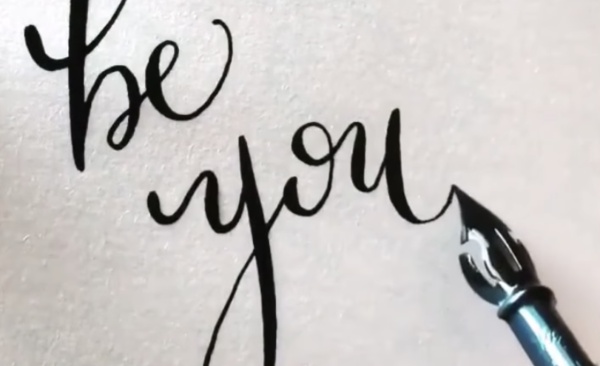 be
you